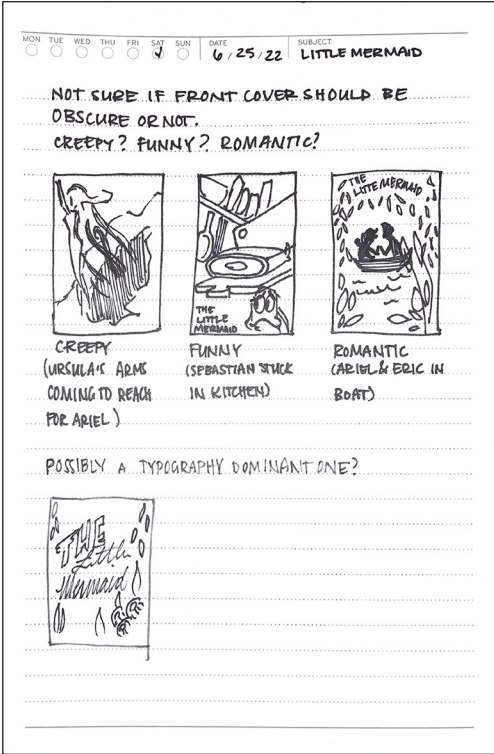 MON TUE WED THU FRI SAT SUN DATE SUBJECT:
6/25/22 LITTLE MERMAID
NOT SURE IF FRONT COVER SHOULD BE
OBSCURE OR NOT.
CREEPY? FUNNY? ROMANTIC?
THE
LITTLE
MERMAID
THE
LITTE MERMAID
CREEPY
(URSULA'S ARMS
COMING TO REACH
FOR ARIEL)
FUNNY
(SEBASTIAN STUCK
IN KITCHEN)
ROMANTIC
(ARIEL & ERIC IN
BOAT)
POSSIBLY A TYPOGRAPHY DOMINANT ONE?
THE
Little
Mermaid